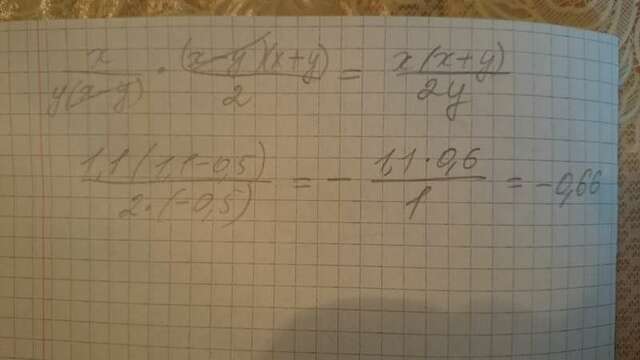 x/y(x-y) · (x-y)(x+y)/2 = x(x+y)/2y
1,1(1,1-0,5)/2·(-0,5) = - 1,1·0,6/1 = -0,66